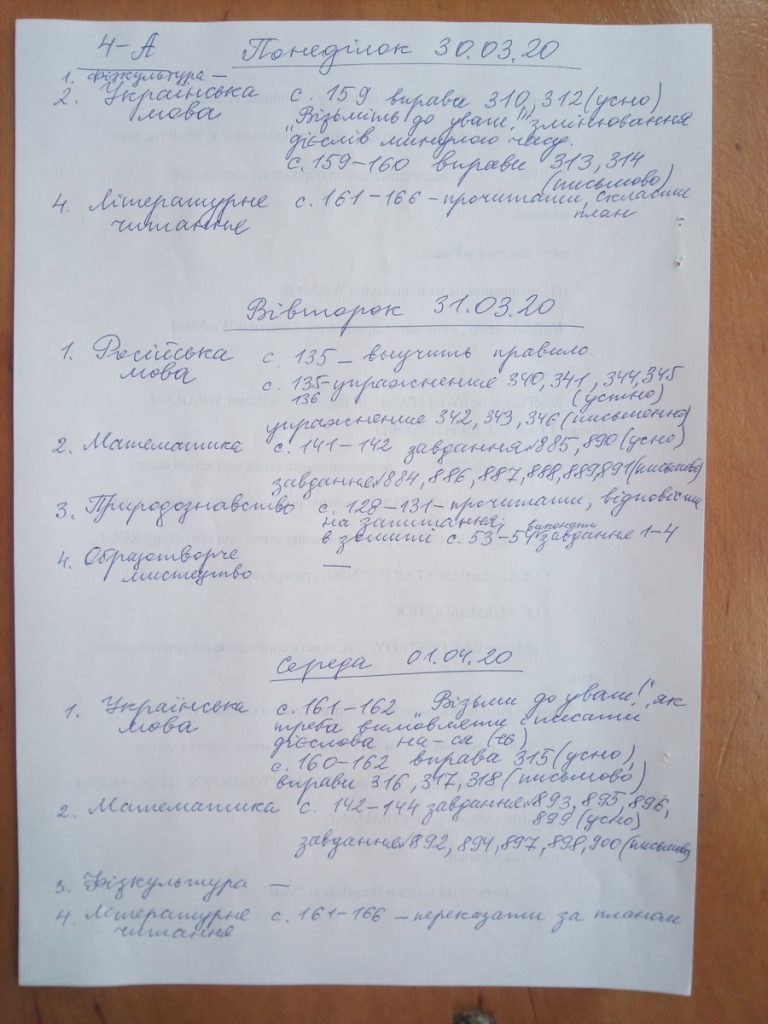 4-А Понеділок 30.03.20
1. Фізкультура —
2. Українська мова с. 159 вправи 310, 312 (усно)
"Візьміть до уваги!" змінювання
дієслів минулого часу.
с. 159-160 вправи 313, 314
(письмово)
4. Літературне читання с. 161-166 - прочитати, скласти
план
Вівторок 31.03.20
1. Російська мова с. 135 - выучить правило
с. 135-136 упражнение 340, 341, 344, 345
(устно)
упражнение 342, 343, 346 (письменно)
2. Математика с. 141-142 завдання №885, 890 (усно)
завдання №884, 886, 887, 888, 889, 891 (письмово)
3. Природознавство с. 128-131 - прочитати, відповісти
на запитання;
в зошиті с. 53-54 виконати завдання 1-4
4. Образотворче мистецтво —
Середа 01.04.20
1. Українська мова с. 161-162 "Візьми до уваги!", як
треба вимовляти і писати
дієслова на -ся (сь)
с. 160-162 вправа 315 (усно),
вправи 316, 317, 318 (письмово)
2. Математика с. 142-144 завдання №893, 895, 896,
899 (усно)
завдання №892, 894, 897, 898, 900 (письмово)
3. Фізкультура —
4. Літературне читання с. 161-166 - переказати за планом